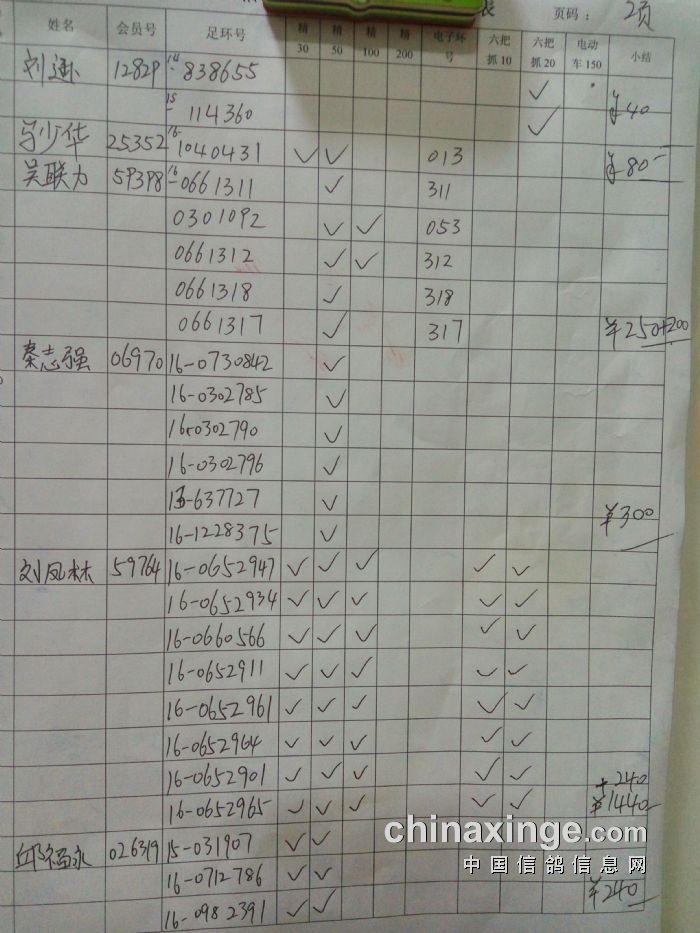 表 页码： 2页
姓名 会员号 足环号 精30 精50 精100 精200 电子环号 六把抓10 六把抓20 电动车150 小结
刘 12829 14-838655 ✓
15-114360 ✓ ¥40
马少华 25352 16-1040431 ✓ ✓ 013 ¥80
吴联力 59398 16-0661311 ✓ 311
0301092 ✓ ✓ 053
0661312 ✓ ✓ 312
0661318 ✓ 318
0661317 ✓ 317 ¥250+200
秦志强 06970 16-0730842 ✓
16-0302785 ✓
16-0302790 ✓
16-0302796 ✓
15-637727 ✓ ¥300
16-1228375 ✓
刘凤林 59764 16-0652947 ✓ ✓ ✓ ✓ ✓
16-0652934 ✓ ✓ ✓ ✓ ✓
16-0660566 ✓ ✓ ✓ ✓ ✓
16-0652911 ✓ ✓ ✓ ✓ ✓
16-0652961 ✓ ✓ ✓ ✓ ✓
16-0652964 ✓ ✓ ✓ ✓ ✓
16-0652901 ✓ ✓ ✓ ✓ ✓ +240
16-0652965 ✓ ✓ ✓ ✓ ✓ ¥1440
邱福永 026319 15-031907 ✓ ✓
16-0712786 ✓ ✓
16-0982391 ✓ ✓ ¥240
chinaxinge.com
中国信鸽信息网